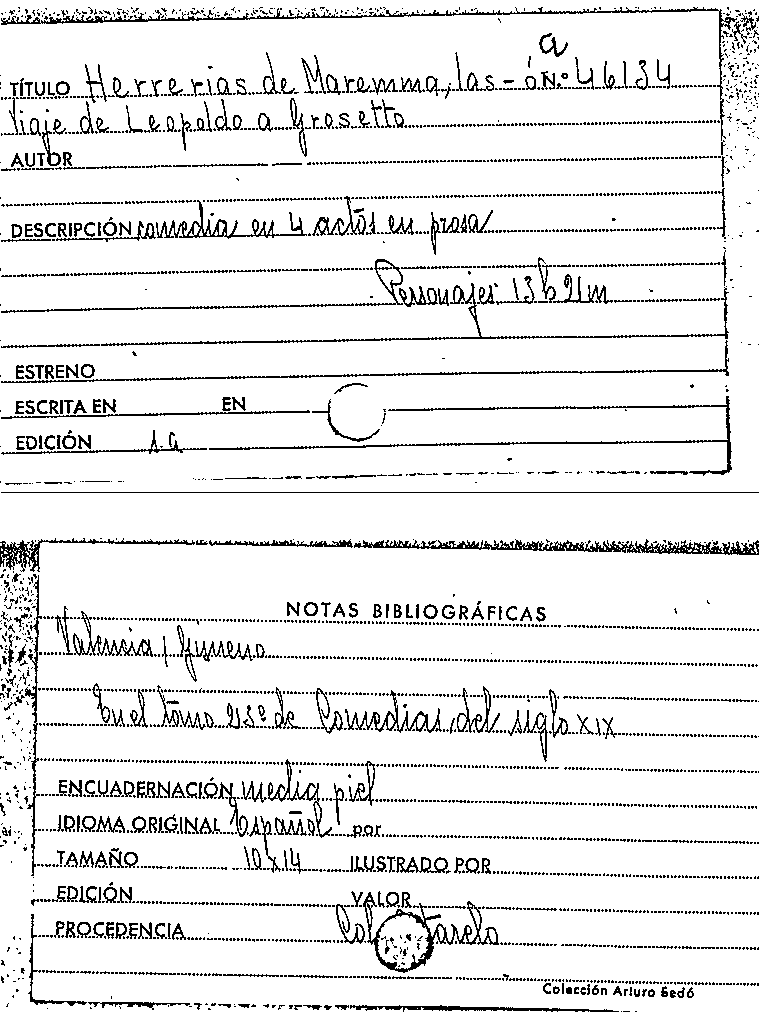 a
TÍTULO Herrerias de Maremma, las - ó N.º 46134
Viaje de Leopoldo a Grosetto
AUTOR
DESCRIPCIÓN comedia en 4 actos en prosa
Personajes: 13 h 21 m
ESTRENO
ESCRITA EN EN
EDICIÓN s.a
NOTAS BIBLIOGRÁFICAS
Valencia, Gimeno
En el tomo º de Comedias del siglo XIX
ENCUADERNACIÓN media piel
IDIOMA ORIGINAL Español por
TAMAÑO 10x14 ILUSTRADO POR
EDICIÓN VALOR
PROCEDENCIA Col tarelo
Colección Arturo Sedó